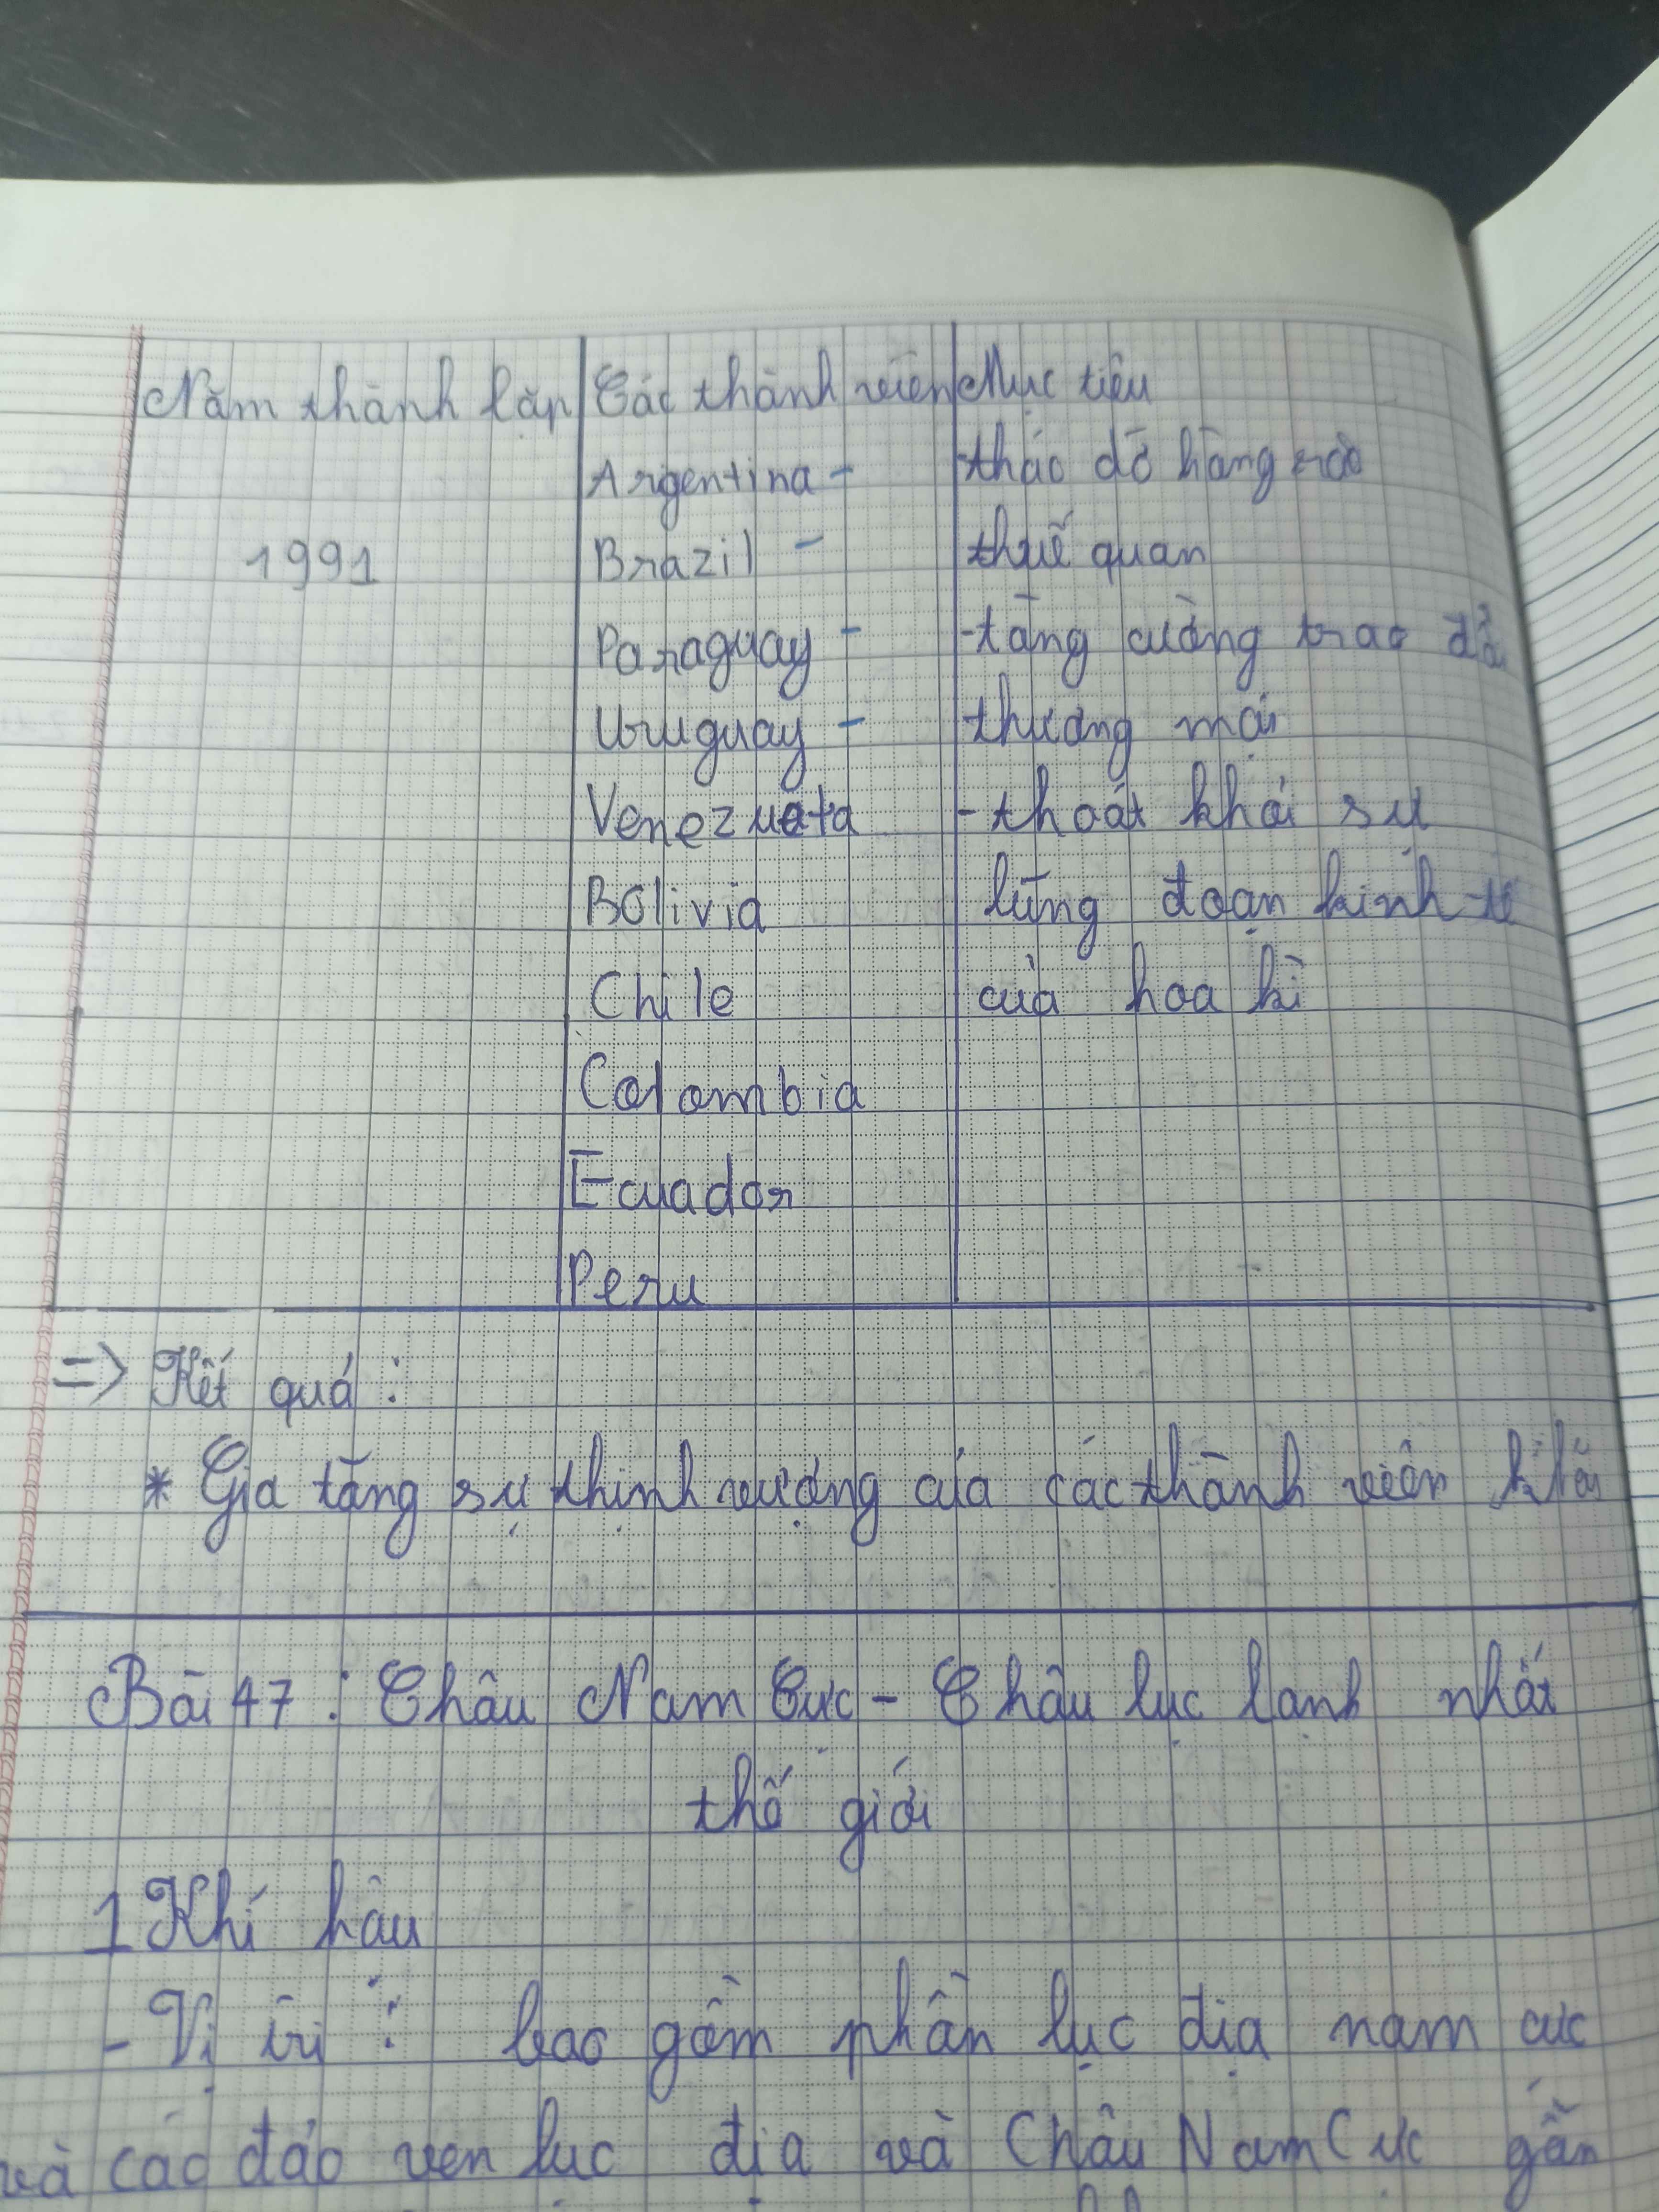 Năm thành lập Các thành viên Mục tiêu
Argentina - tháo dỡ hàng rào
1991 Brazil - thuế quan
Paraguay - - tăng cường trao đổi
Uruguay - thương mại
Venezuela - thoát khỏi sự
Bolivia lũng đoạn kinh tế
Chile của hoa kì
Colombia
Ecuador
Peru
=> Kết quả :
* Gia tăng sự thịnh vượng của các thành viên
Bài 47 : Châu Nam Cực - Châu lục lạnh nhất
thế giới
1 Khí hậu
- Vị trí : bao gồm phần lục địa nam cực
và các đảo ven lục địa và Châu Nam Cực gần